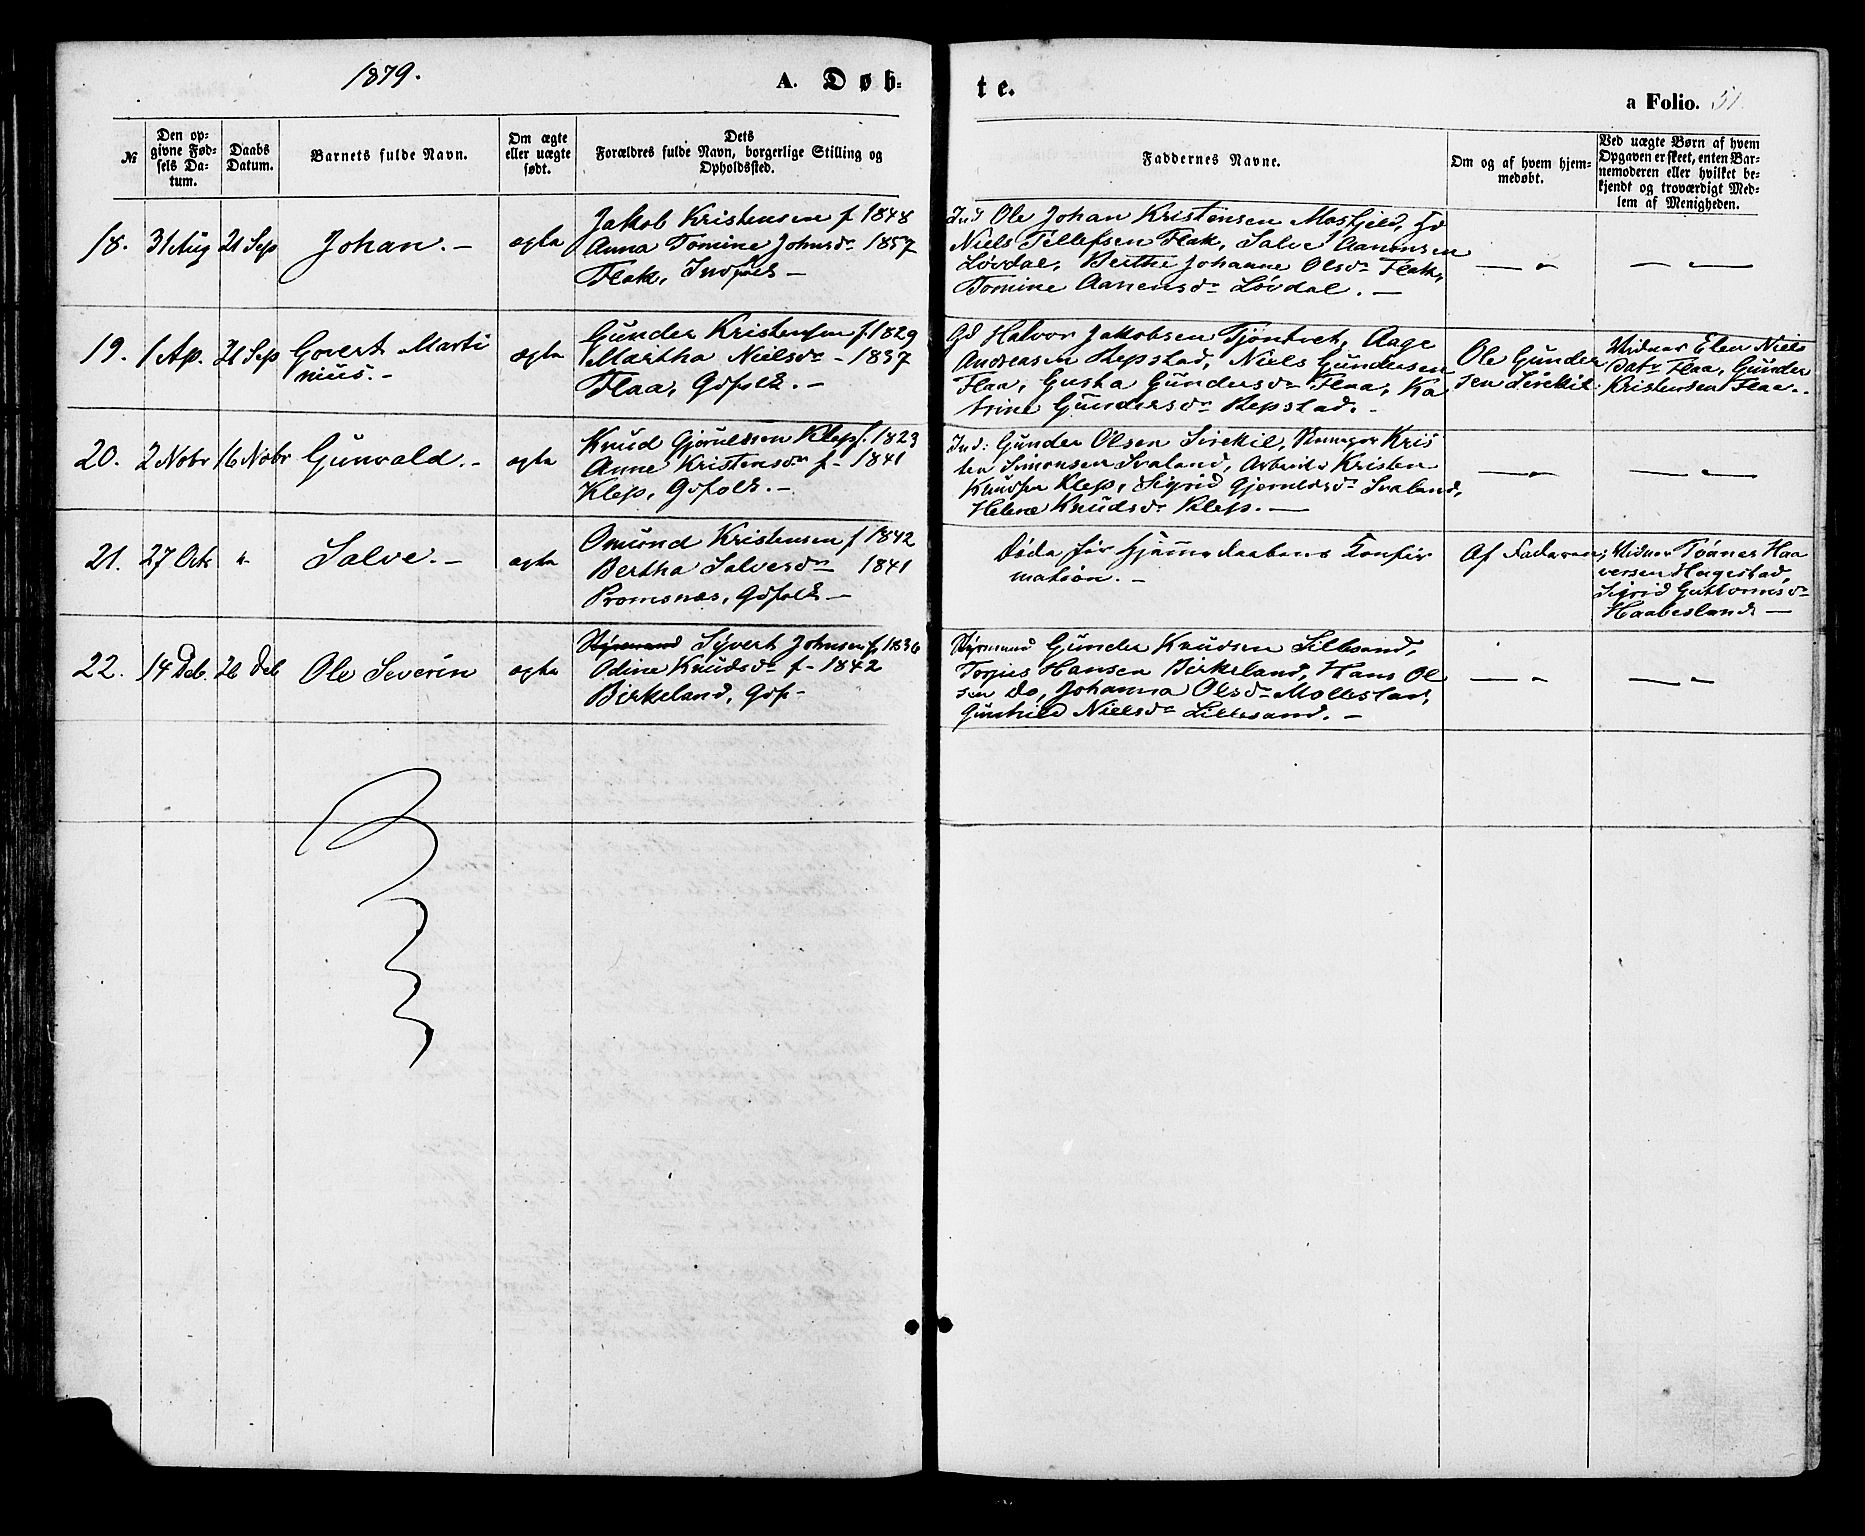 1879.
A. Døb-
te.
a Folio. 51.
№
Den op-
givne Fød-
sels Da-
tum.
Daabs
Datum.
Barnets fulde Navn.
Om ægte
eller uægte
født.
Dets
Forældres fulde Navn, borgerlige Stilling og
Opholdssted.
Faddernes Navne.
Om og af hvem hjem-
medøbt.
Ved uægte Børn af hvem
Opgaven er skeet, enten Bar-
nemoderen eller hvilket be-
kjendt og troværdigt Med-
lem af Menigheden.
18. 31 Aug 21 Sep Johan. – ægta
Jakob Kristensen f 1848
Anna Tomine Johnsdr 1857
Flak, Indfolk –
Ind Ole Johan Kristensen Mosfjeld, Gd
Niels Tellefsen Flak, Salve Aanonsen
Løvdal, Berthe Johanne Olsdr Flak,
Tomine Aanensdr Løvdal. –
— „
— „ —
19. 1 Ap. 21 Sep Govert Marti
nius. –
ægta
Gunder Kristensen f. 1829
Martha Nielsdr – 1837
Flaa, Gdfolk. –
Gd Halvor Jakobsen Tjöntvet, Aage
Andreasen Repstad, Niels Gundersen
Flaa, Gusta Gundersdr Flaa, Ka
trine Gundersdr Repstad. –
Ole Gunder
sen Sirekil.
Vidner Elen Niels
Datr Flaa, Gunder
Kristensen Flaa. –
20. 2 Nobr 16 Nobr Gunvald. – ægta
Knud Gjerulssen Klep f. 1823
Anne Kristensdr f – 1841
Klep, Gdfolk. –
Ind: Gunder Olsen Sirekil, Kris
ten Simonsen Svaland, Arbeids Kristen
Knudsen Klep, Sigrid Gjeruldsdr Svaland,
Helene Knudsdr Klep. —
— „
— „ —
21. 27 Octr „ Salve. – ægta
Omund Kristensen f 1842
Bertha Salvesdr 1841
Promsnæs, Gdfolk –
Døda før Hjemmedaabens Konfir
mation. –
Af Faderen;
Vidner Tönnes Haa
versen Hagestad,
Sigrid Guttormsdr
Haabesland —
22. 14 Deb. 26 Deb Ole Severin ægta
Styrmand Syvert Johnsen f. 1836
Odine Knudsdr f – 1842
Birkeland, Gdf –
Styrmand Gunder Knudsen Lillesand,
Torjus Hansen Birkeland, Hans Ol
sen do, Johanna Olsdr Mollestad,
Gunhild Nielsdr Lillesand. –
— „
— „